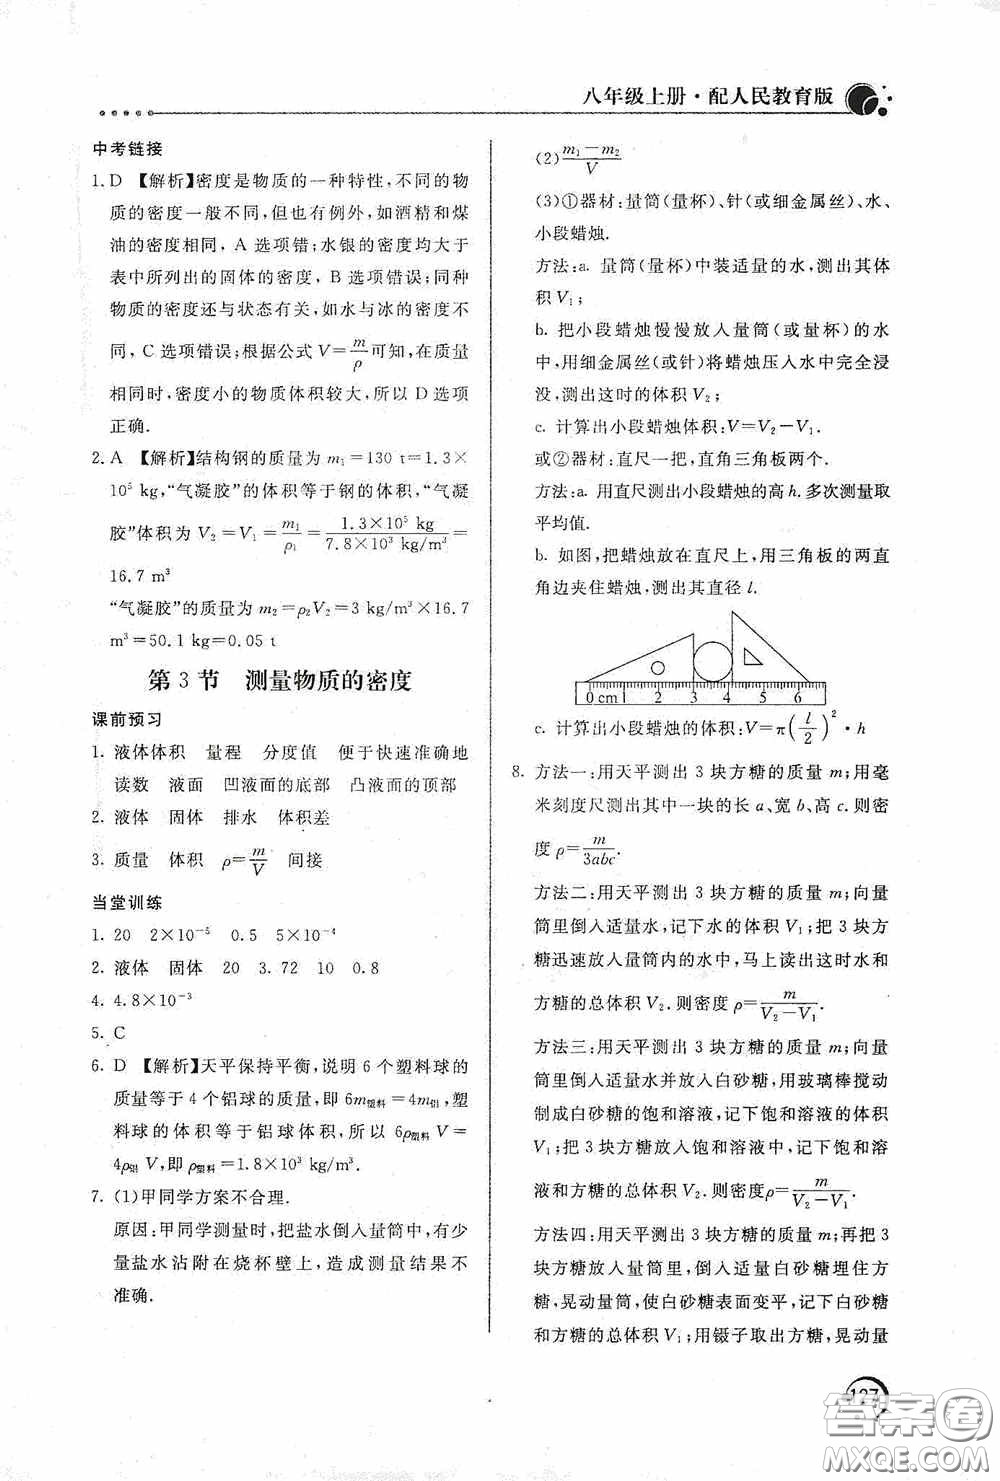 八年级上册·配人民教育版
中考链接
1. D 【解析】密度是物质的一种特性,不同的物
质的密度一般不同,但也有例外,如酒精和煤
油的密度相同,A 选项错;水银的密度均大于
表中所列出的固体的密度,B 选项错误;同种
物质的密度还与状态有关,如水与冰的密度不
同,C 选项错误;根据公式 V=m/ρ 可知,在质量
相同时,密度小的物质体积较大,所以 D 选项
正确.
2. A 【解析】结构钢的质量为 m₁=130 t=1.3×
10⁵ kg,“气凝胶”的体积等于钢的体积,“气凝
胶”体积为 V₂=V₁=m₁/ρ₁=1.3×10⁵ kg/7.8×10³ kg/m³=
16.7 m³
“气凝胶”的质量为 m₂=ρ₂V₂=3 kg/m³×16.7
m³=50.1 kg=0.05 t
第 3 节 测量物质的密度
课前预习
1. 液体体积 量程 分度值 便于快速准确地
读数 液面 凹液面的底部 凸液面的顶部
2. 液体 固体 排水 体积差
3. 质量 体积 ρ=m/V 间接
当堂训练
1. 20 2×10⁻⁵ 0.5 5×10⁻⁴
2. 液体 固体 20 3.72 10 0.8
4. 4.8×10⁻³
5. C
6. D 【解析】天平保持平衡,说明 6 个塑料球的
质量等于 4 个铝球的质量,即 6m塑料=4m铝,塑
料球的体积等于铝球体积,所以 6ρ塑料 V=
4ρ铝 V,即 ρ塑料=1.8×10³ kg/m³.
7. (1)甲同学方案不合理.
原因:甲同学测量时,把盐水倒入量筒中,有少
量盐水沾附在烧杯壁上,造成测量结果不
准确.
(2)m₁－m₂/V
(3)①器材:量筒(量杯)、针(或细金属丝)、水、
小段蜡烛.
方法:a. 量筒(量杯)中装适量的水,测出其体
积 V₁;
b. 把小段蜡烛慢慢放入量筒(或量杯)的水
中,用细金属丝(或针)将蜡烛压入水中完全浸
没,测出这时的体积 V₂;
c. 计算出小段蜡烛体积:V=V₂－V₁.
或②器材:直尺一把,直角三角板两个.
方法:a. 用直尺测出小段蜡烛的高 h. 多次测量取
平均值.
b. 如图,把蜡烛放在直尺上,用三角板的两直
角边夹住蜡烛,测出其直径 l.
0 cm 1 2 3 4 5 6
c. 计算出小段蜡烛的体积:V=π(l/2)²·h
8. 方法一:用天平测出 3 块方糖的质量 m;用毫
米刻度尺测出其中一块的长 a、宽 b、高 c. 则密
度 ρ=m/3abc.
方法二:用天平测出 3 块方糖的质量 m;向量
筒里倒入适量水,记下水的体积 V₁;把 3 块方
糖迅速放入量筒内的水中,马上读出这时水和
方糖的总体积 V₂. 则密度 ρ=m/V₂－V₁.
方法三:用天平测出 3 块方糖的质量 m;向量
筒里倒入适量水并放入白砂糖,用玻璃棒搅动
制成白砂糖的饱和溶液,记下饱和溶液的体积
V₁;把 3 块方糖放入饱和溶液中,记下饱和溶
液和方糖的总体积 V₂. 则密度ρ=m/V₂－V₁.
方法四:用天平测出 3 块方糖的质量 m;再把 3
块方糖放入量筒里,倒入适量白砂糖埋住方
糖,晃动量筒,使白砂糖表面变平,记下白砂糖
和方糖的总体积 V₁;用镊子取出方糖,晃动量
127
答案圈
MXQE.COM